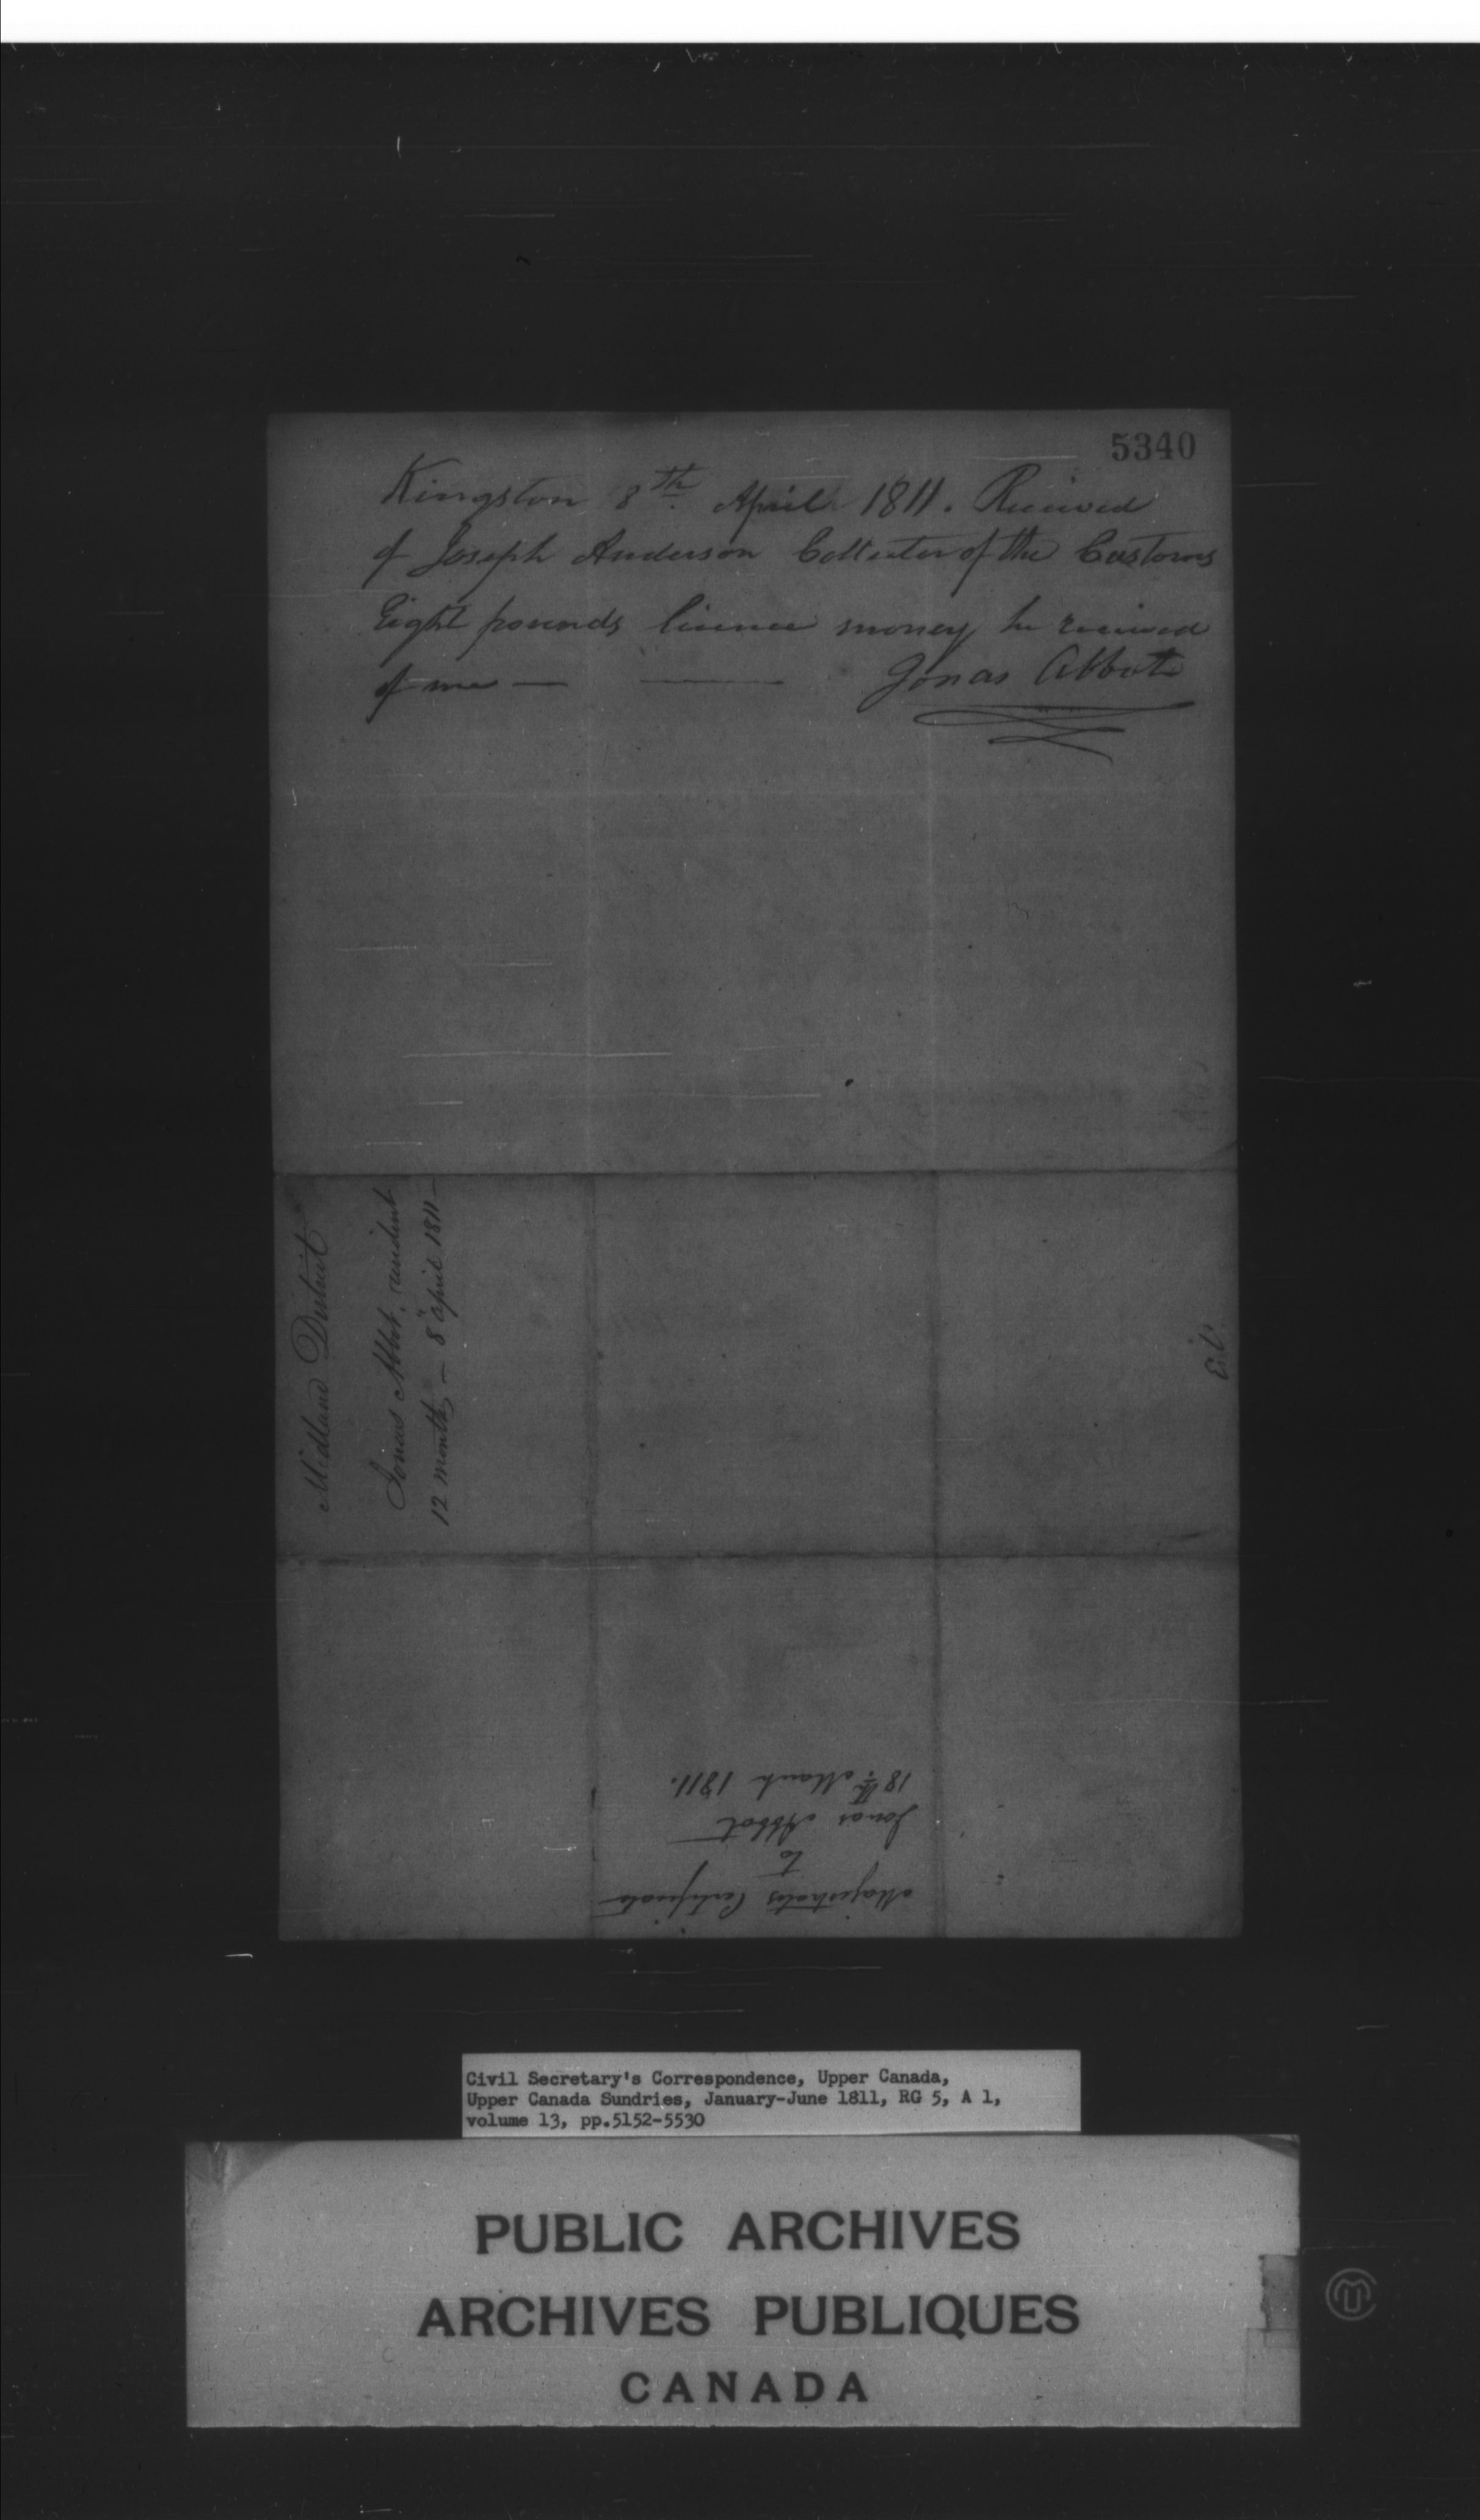 5340
Kingston 8th. April 1811. Received
of Joseph Anderson Collector of the Customs
Eight pounds licence money he received
of me — —
Jonas Abbott
Midland District
Jonas Abbot, resident
12 months — 8th april 1811 —
Magistrates Certificate
to
Jonas Abbot
18th. March 1811.
Civil Secretary's Correspondence, Upper Canada,
Upper Canada Sundries, January-June 1811, RG 5, A 1,
volume 13, pp.5152-5530
PUBLIC ARCHIVES
ARCHIVES PUBLIQUES
CANADA